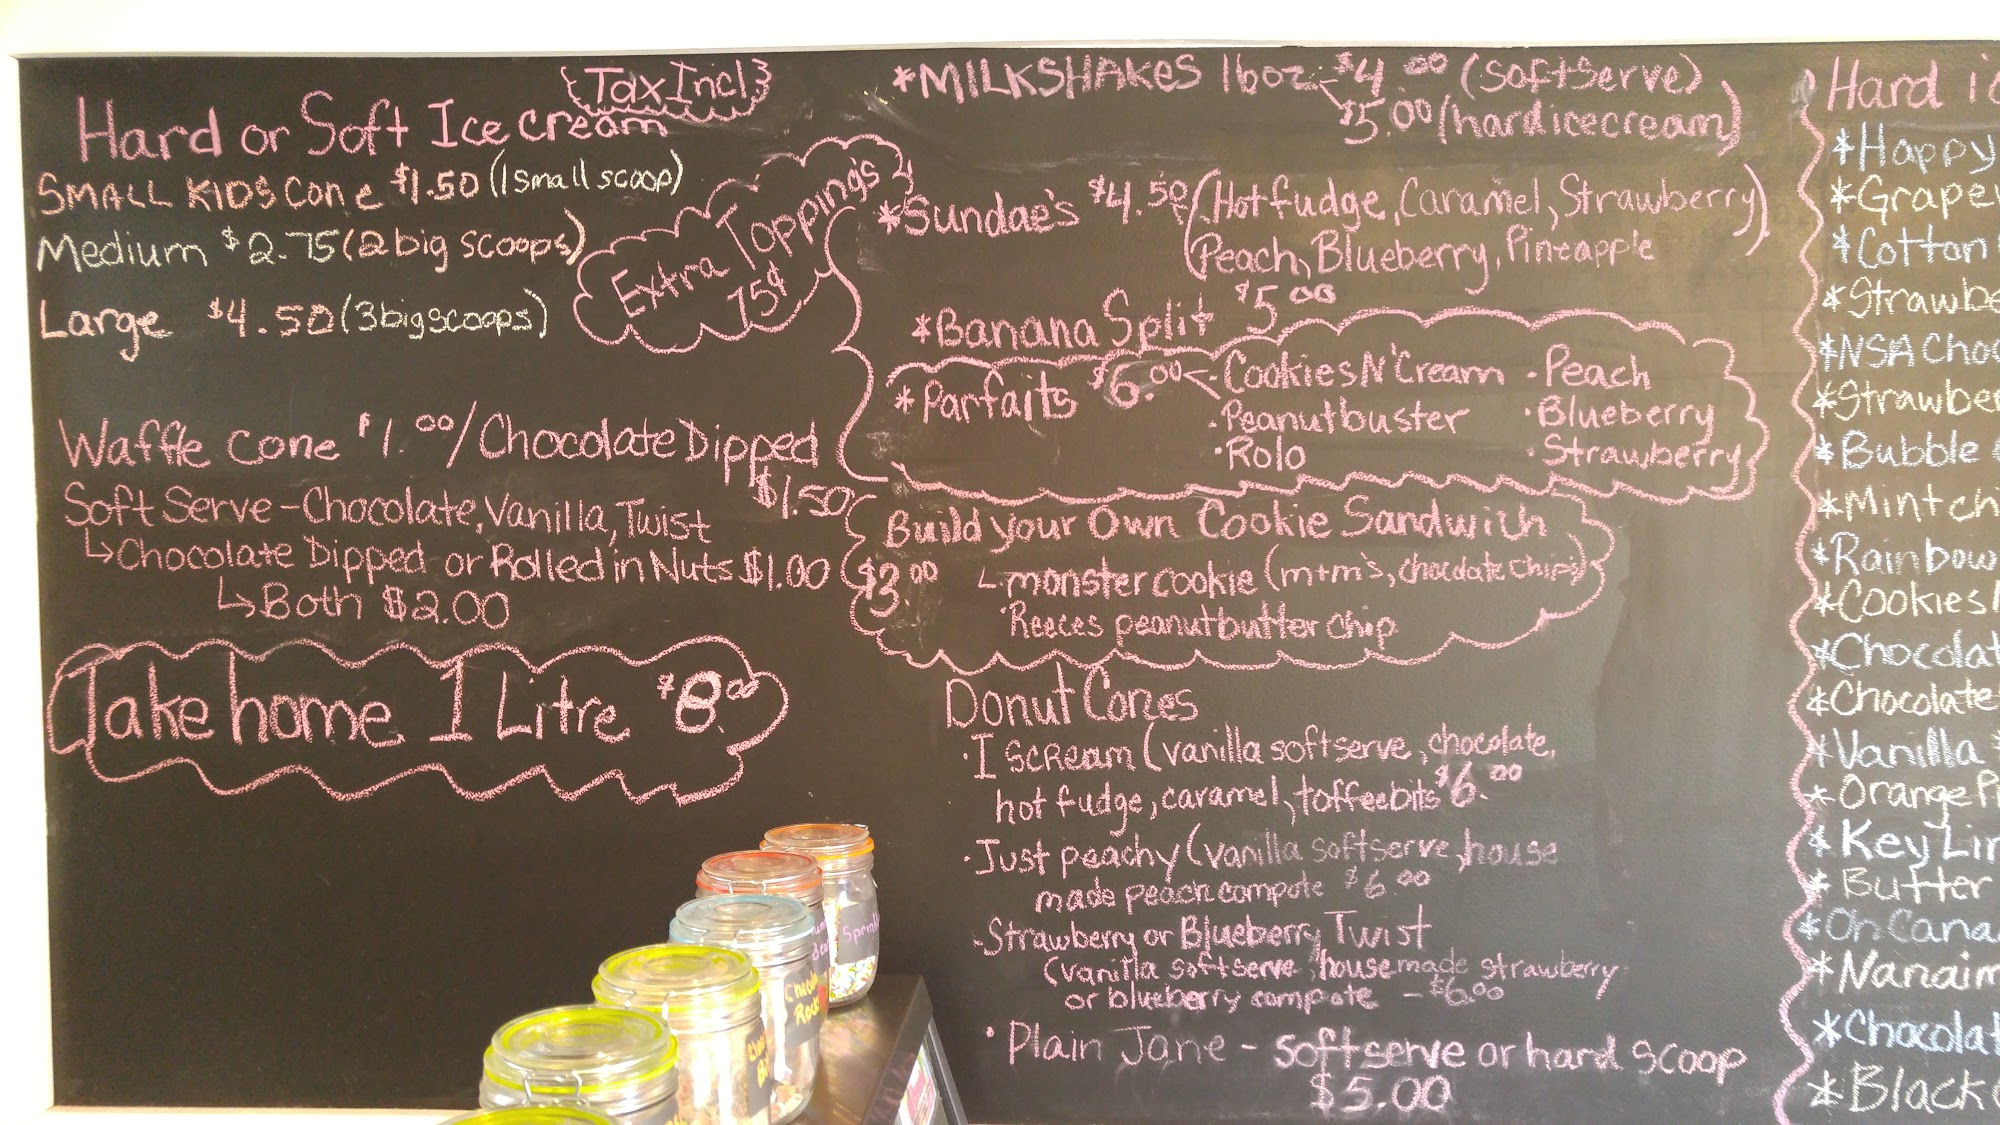 Tax Incl
Hard or Soft Ice cream
SMALL KIDS Cone $1.50 (1 small scoop)
Medium $2.75 (2 big scoops)
Large $4.50 (3 big scoops)
Extra Topping's
75¢
Waffle cone $1.00/Chocolate Dipped
$1.50
Soft Serve - Chocolate, Vanilla, Twist
↳Chocolate Dipped or Rolled in Nuts $1.00
↳Both $2.00
Take home 1 Litre $8.00
*MILKSHAKES 16oz - $4.00 (softserve)
$5.00 (hard ice cream)
*Sundae's $4.50 (Hot fudge, Caramel, Strawberry)
(Peach, Blueberry, Pineapple
*Banana Split $5.00
*Parfaits $6.00 - Cookies N' Cream · Peach
· Peanutbuster · Blueberry
· Rolo · Strawberry
Build your Own Cookie Sandwich
$3.00 ∟monster cookie (m+m's, chocolate chips)
· Reeces peanutbutter chip
Donut Cones
· I scream (vanilla softserve, chocolate,
hot fudge, caramel, toffeebits $6.00
· Just peachy (vanilla softserve, house
made peach compote $6.00
- Strawberry or Blueberry Twist
(vanilla softserve, housemade strawberry
or blueberry compote - $6.00
· Plain Jane - softserve or hard scoop
$5.00
Hard
*Happy
*Cotton
*NSA
*Bubble
*Mint
*Rainbow
*Vanilla
*Key
*Butter
*Oh
*Black